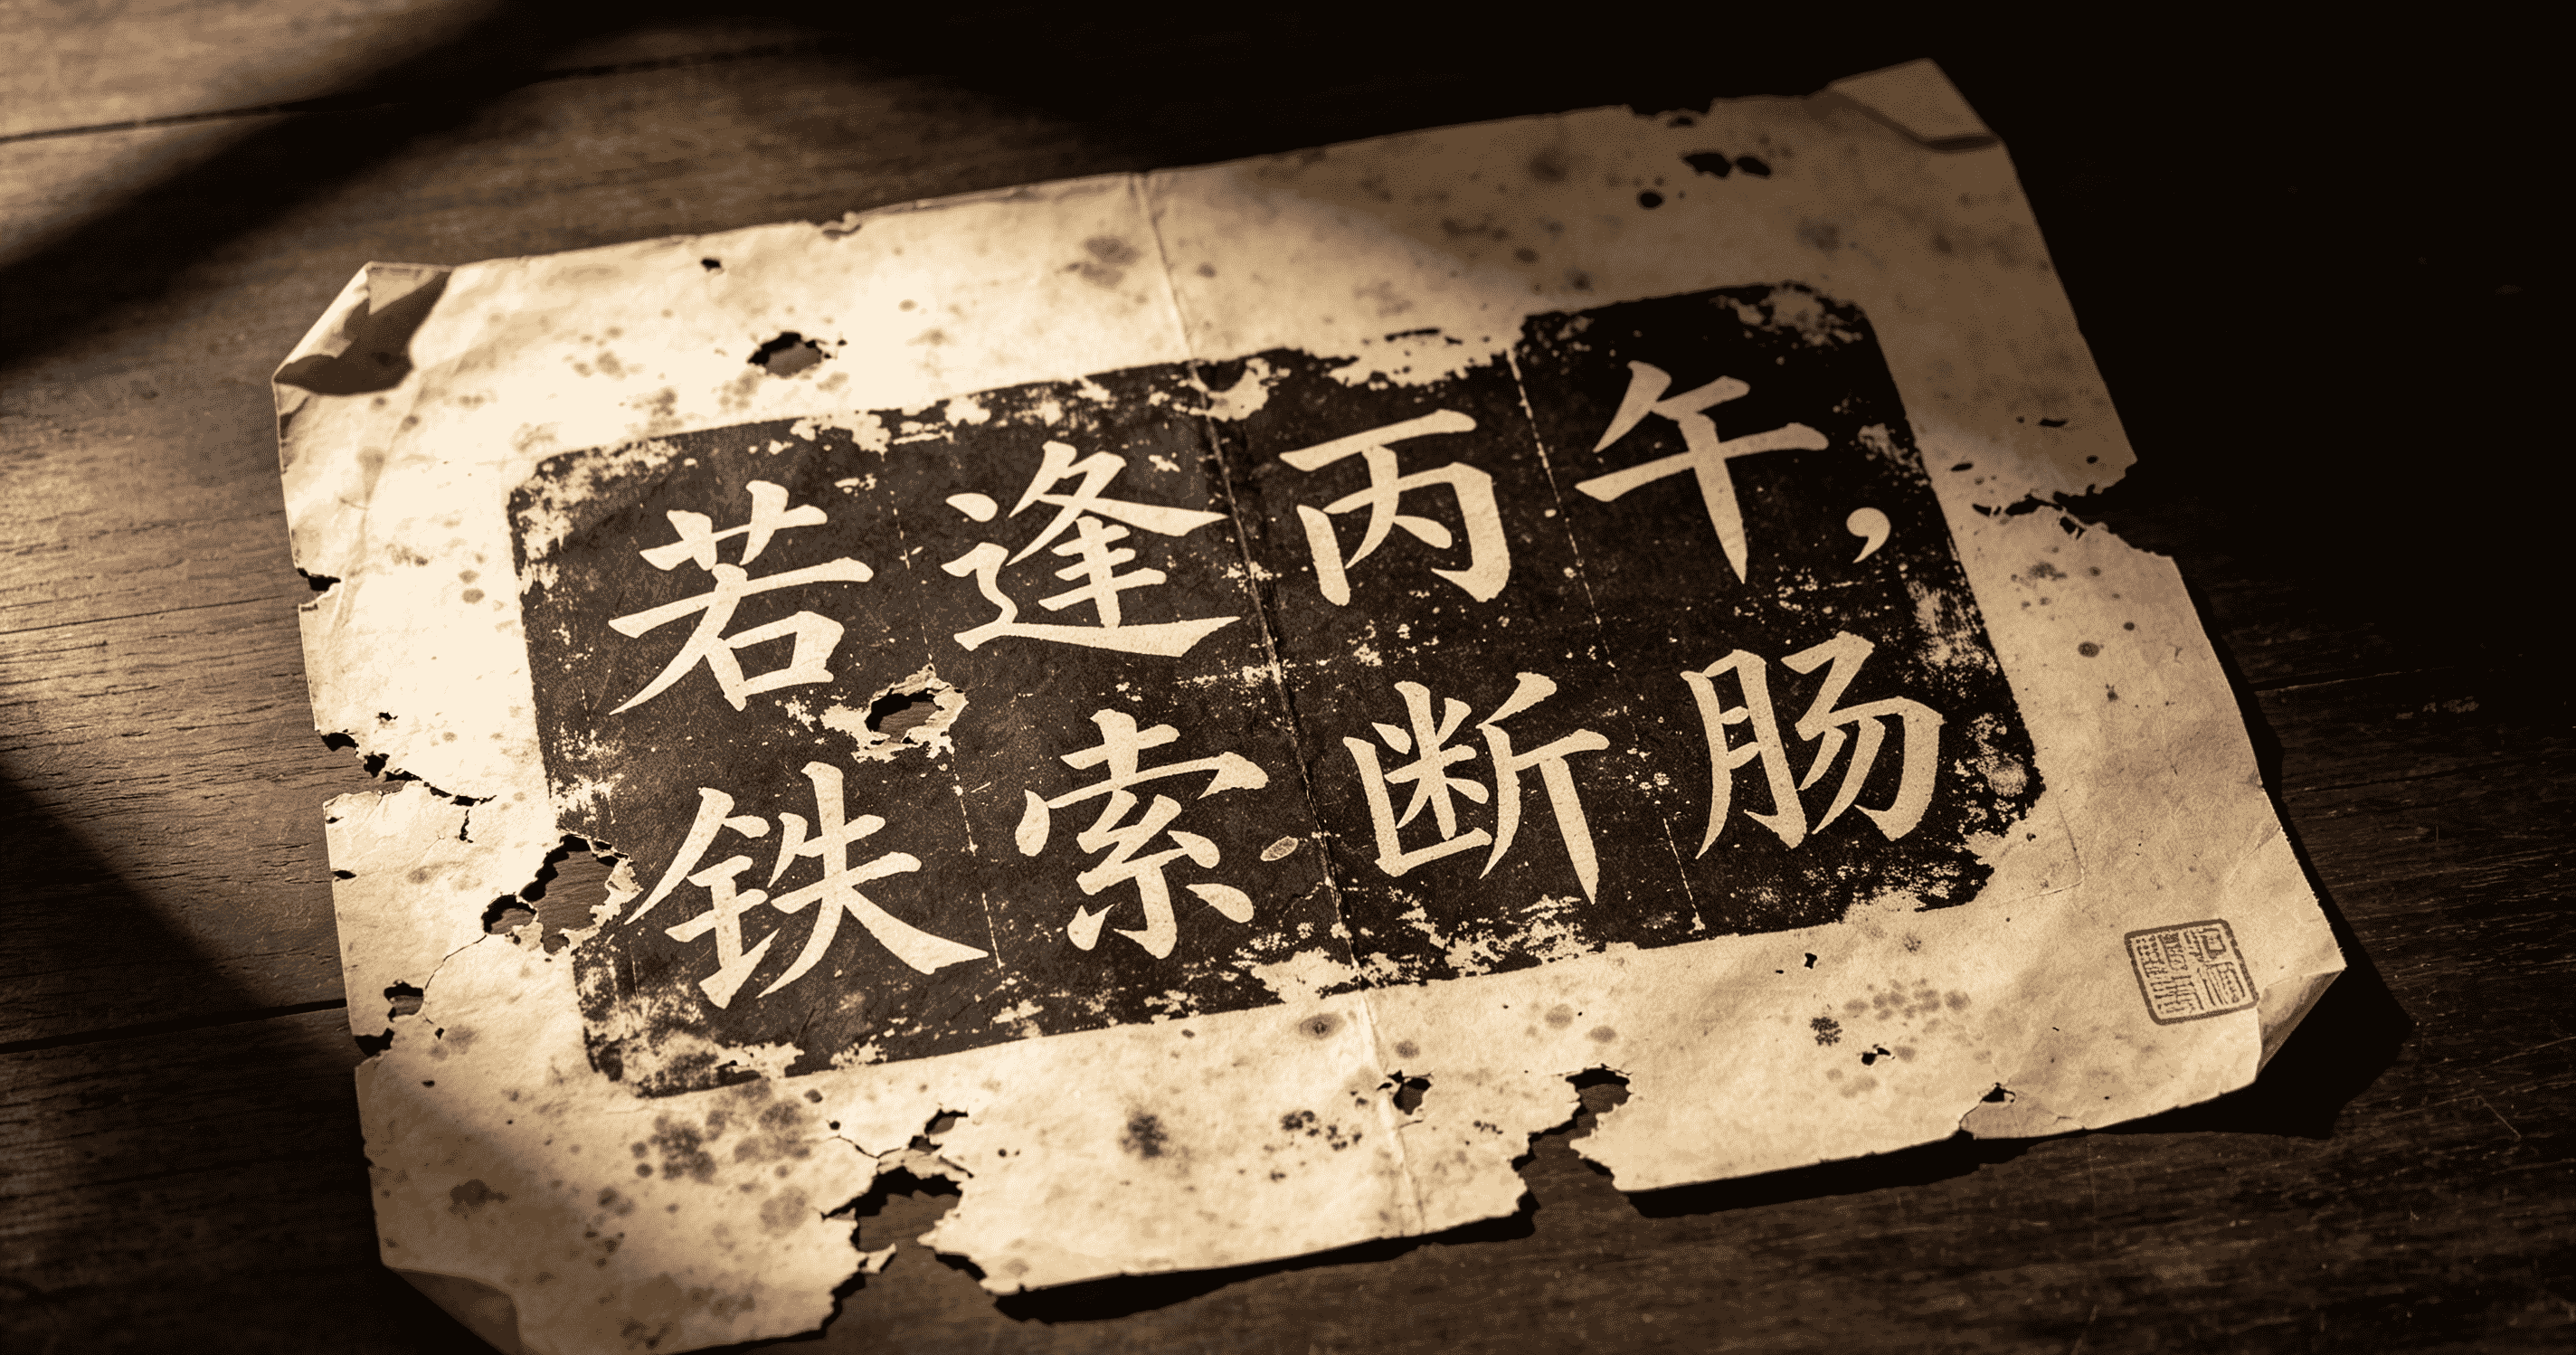 若逢丙午，
铁索断肠